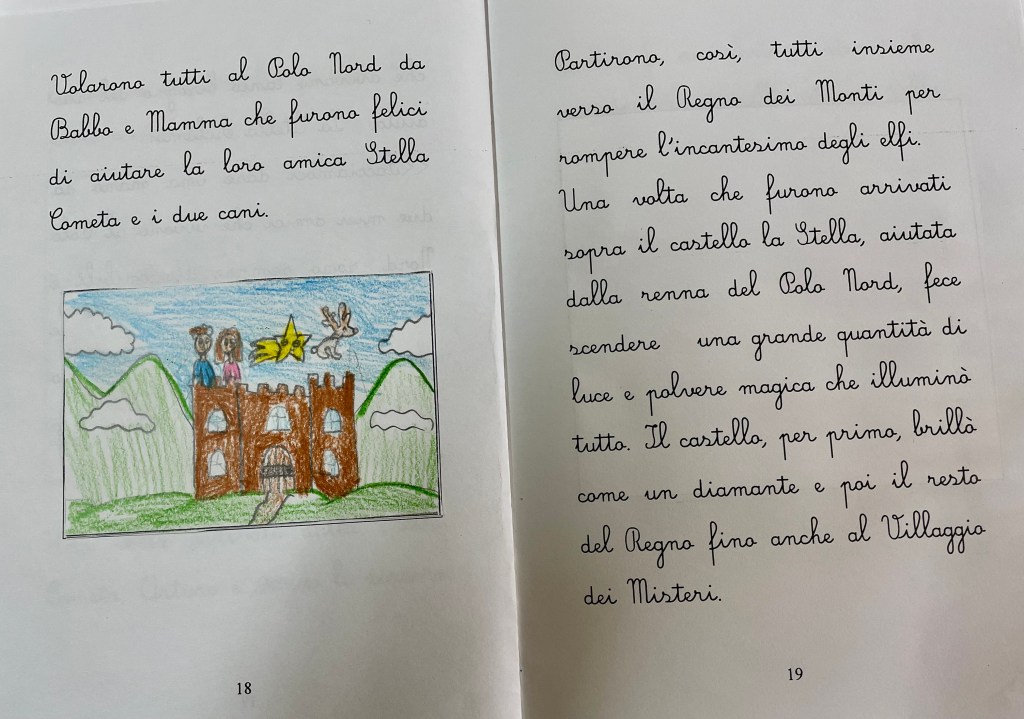 Volarono tutti al Polo Nord da
Babbo e Mamma che furono felici
di aiutare la loro amica Stella
Cometa e i due cani.
18
Partirono, così, tutti insieme
verso il Regno dei Monti per
rompere l'incantesimo degli elfi.
Una volta che furono arrivati
sopra il castello la Stella, aiutata
dalla renna del Polo Nord, fece
scendere una grande quantità di
luce e polvere magica che illuminò
tutto. Il castello, per primo, brillò
come un diamante e poi il resto
del Regno fino anche al Villaggio
dei Misteri.
19